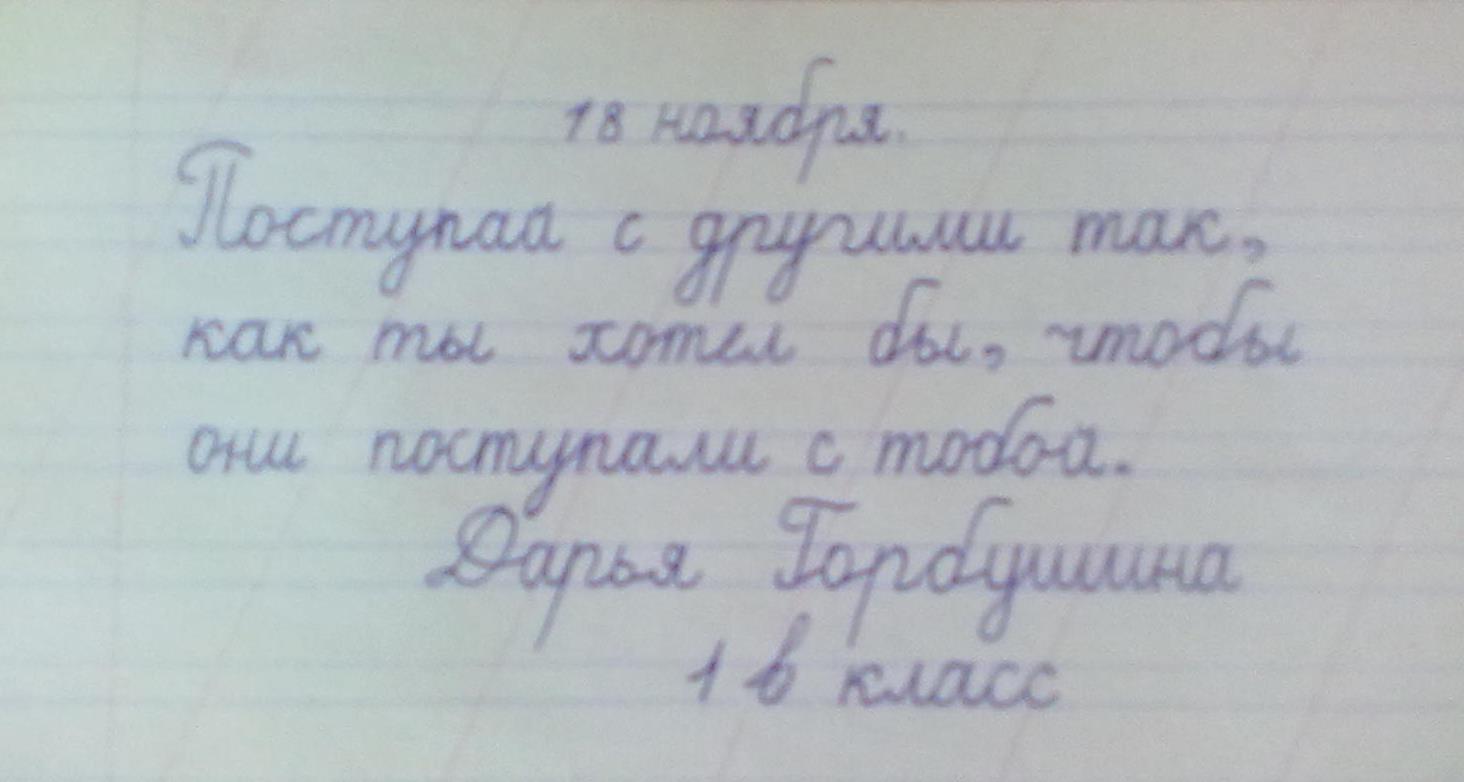 18 ноября.
Поступай с другими так,
как ты хотел бы, чтобы
они поступали с тобой.
Дарья Горбушина
1 в класс